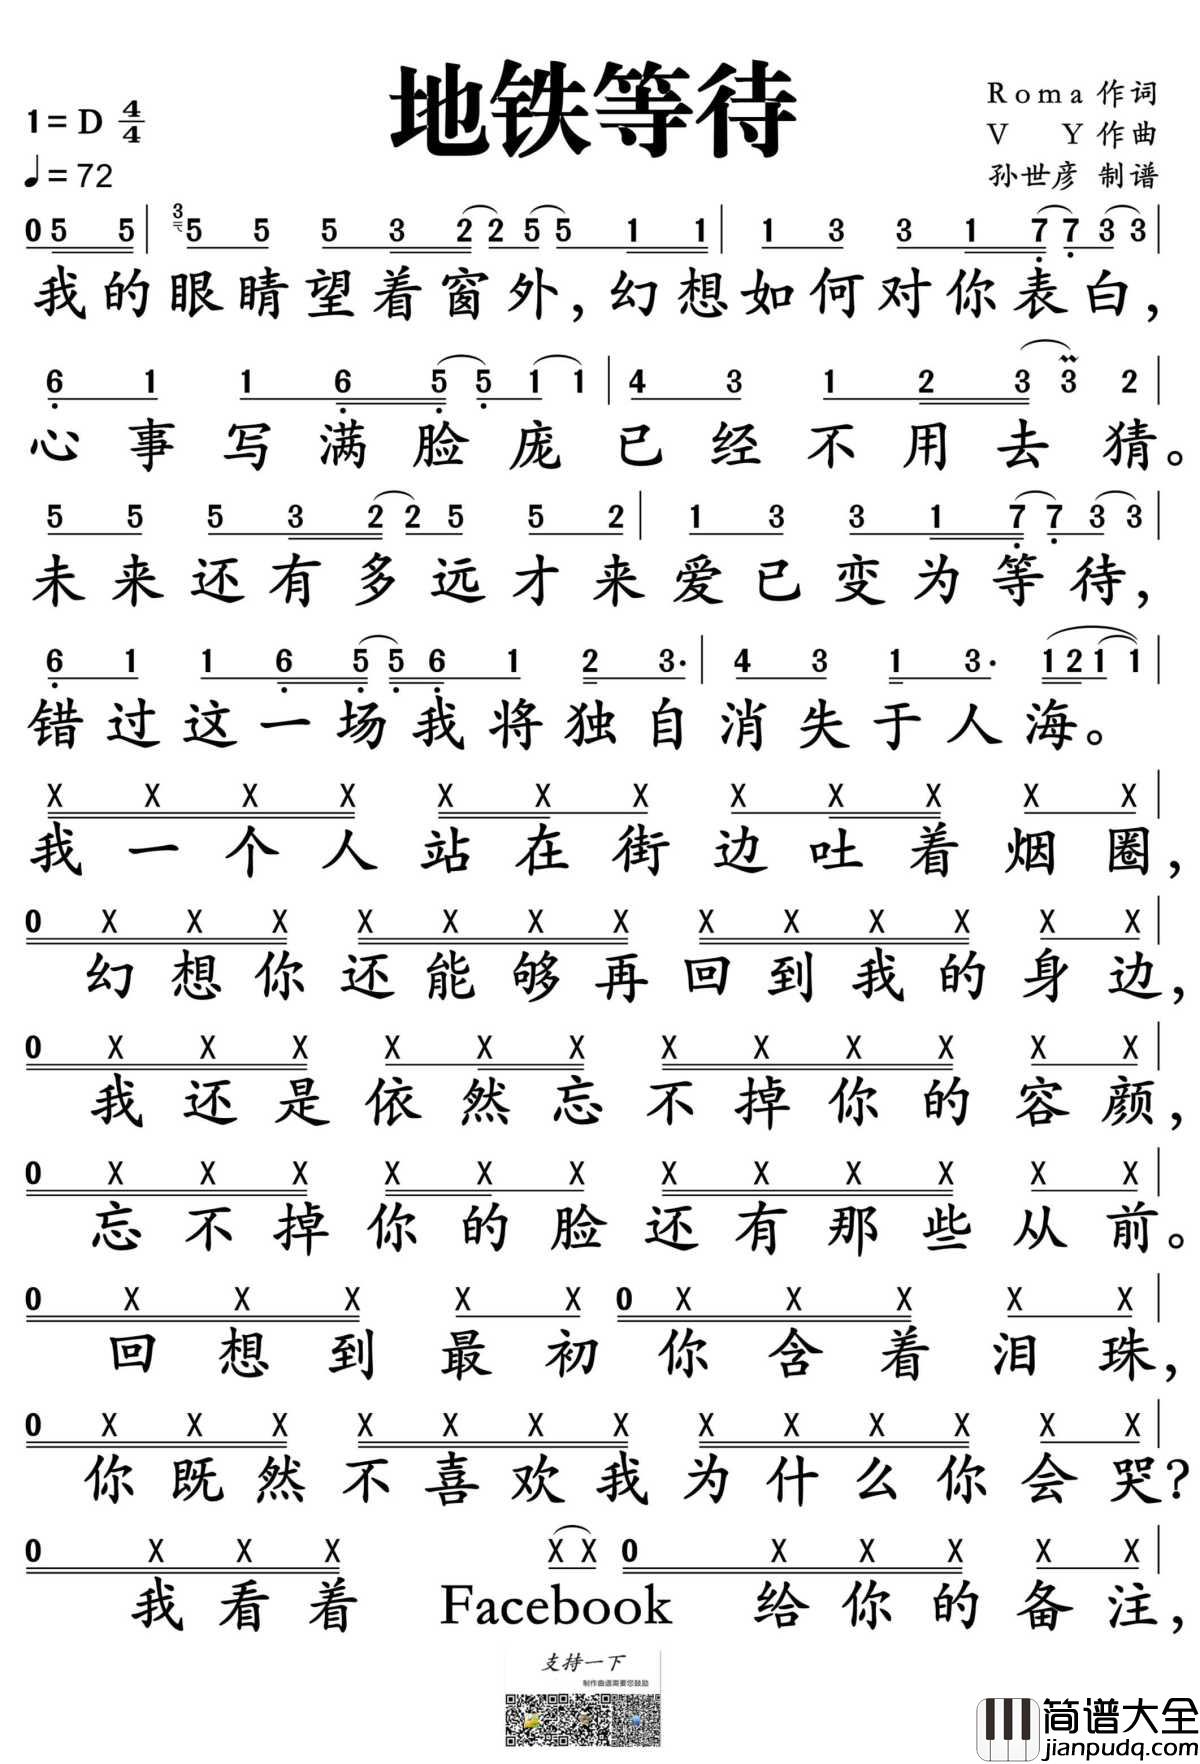 地铁等待
1=D 4/4
♩=72
Roma作词
V Y作曲
孙世彦 制谱
0 5 5 | 3 5 5 5 3 2 2 5 5 1 1 | 1 3 3 1 7 7 3 3 |
我的眼睛望着窗外,幻想如何对你表白,
6 1 1 6 5 5 1 1 | 4 3 1 2 3 3 2 |
心事写满脸庞已经不用去猜。
5 5 5 3 2 2 5 5 2 | 1 3 3 1 7 7 3 3 |
未来还有多远才来爱已变为等待,
6 1 1 6 5 5 6 1 2 3· | 4 3 1 3· 1 2 1 1 |
错过这一场我将独自消失于人海。
X X X X X X X X X X X X |
我一个人站在街边吐着烟圈,
0 X X X X X X X X X X X X X |
幻想你还能够再回到我的身边,
0 X X X X X X X X X X X X |
我还是依然忘不掉你的容颜,
0 X X X X X X X X X X X X |
忘不掉你的脸还有那些从前。
0 X X X X X 0 X X X X X |
回想到最初你含着泪珠,
0 X X X X X X X X X X X X X |
你既然不喜欢我为什么你会哭?
0 X X X X X 0 X X X X X |
我看着 Facebook 给你的备注,
支持一下
制作曲谱需要您鼓励
简谱大全
jianpudq.com